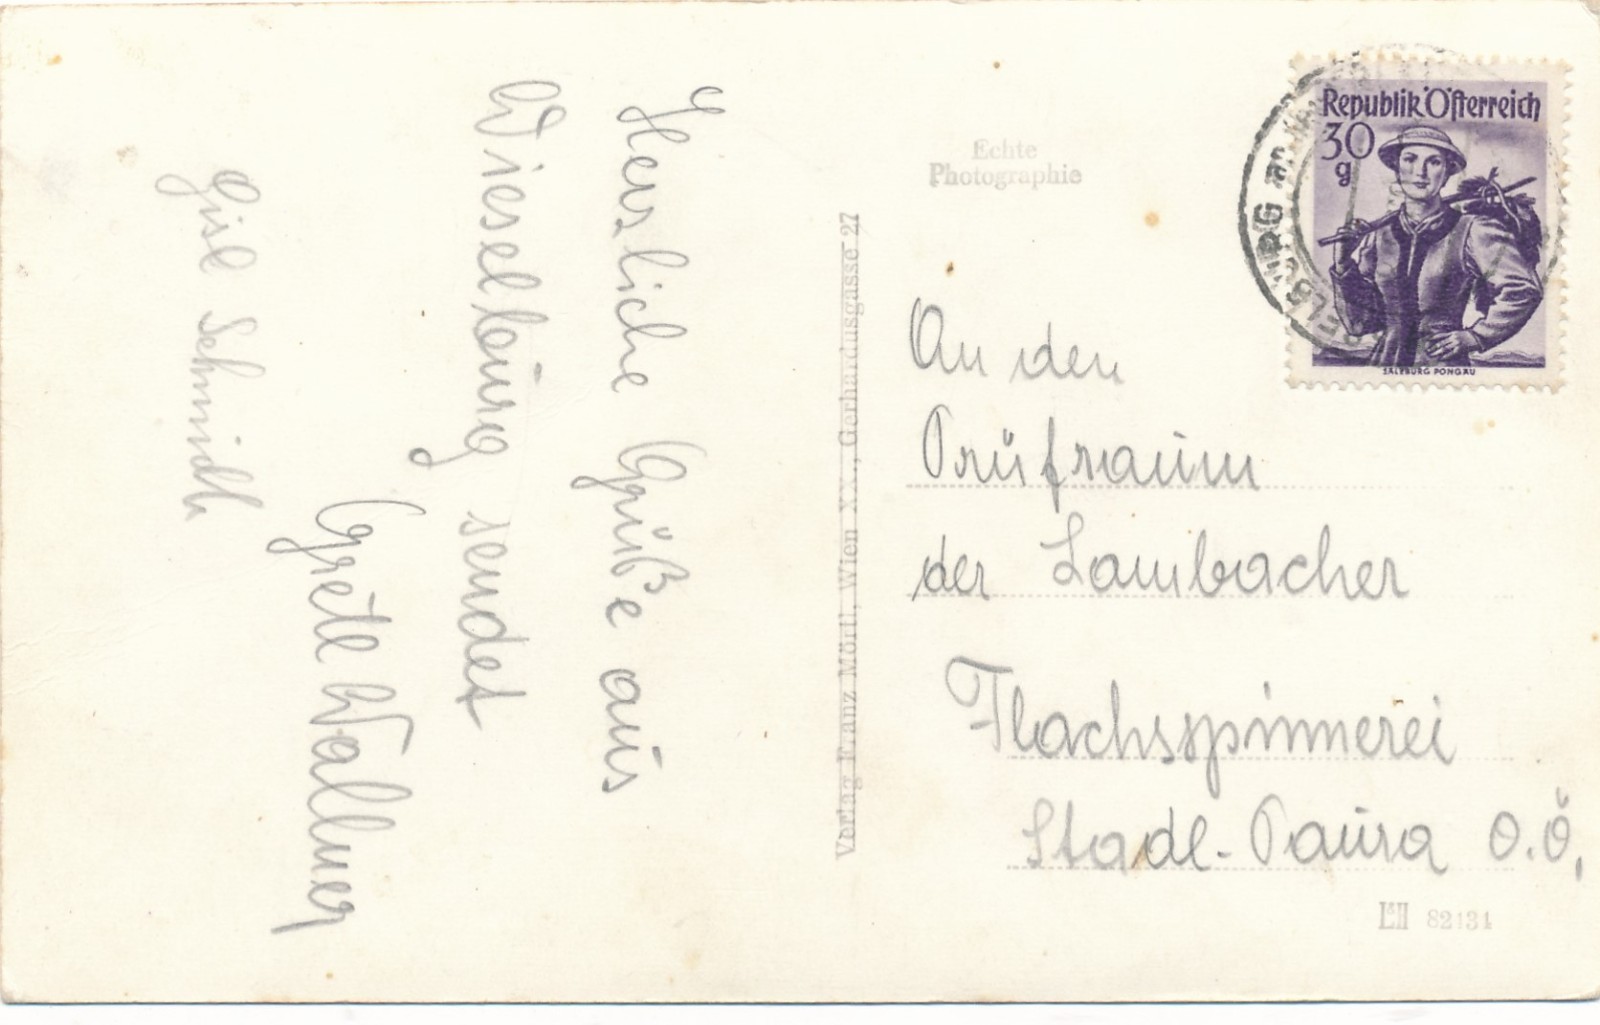 Herzliche Grüße aus
Wieselburg sendet
Gretl Wallner
Gisl Schmidl
Verlag Franz Mörtl, Wien XX., Gerhardusgasse 27
Echte
Photographie
Republik Österreich
30
g
SALZBURG PONGAU
An den
Prüfraum
der Lambacher
Flachsspinnerei
Stadl-Paura O.Ö.
82134